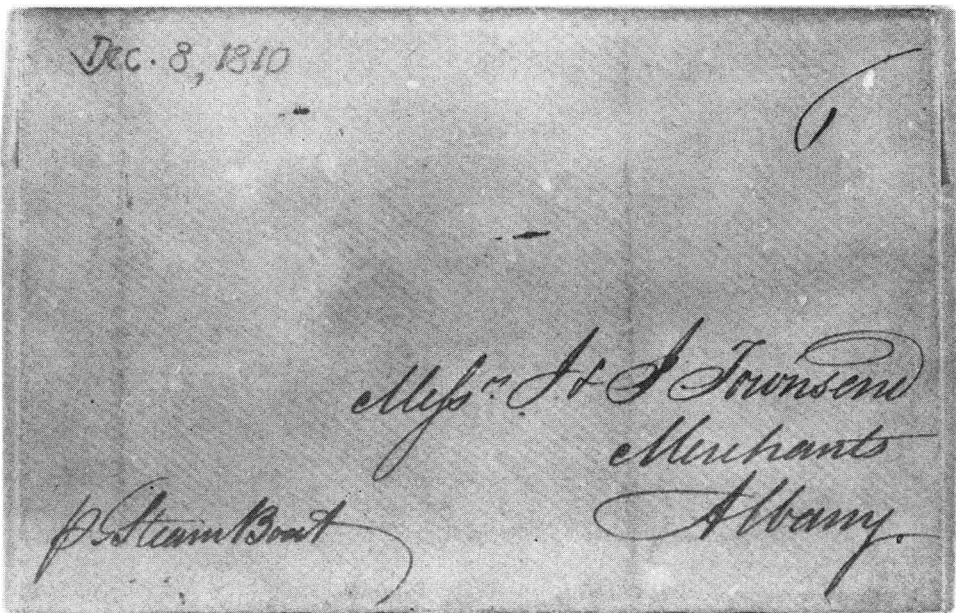 Dec. 8, 1810
Messrs. I & J Townsend
Merchants
Albany.
p. Steam Boat